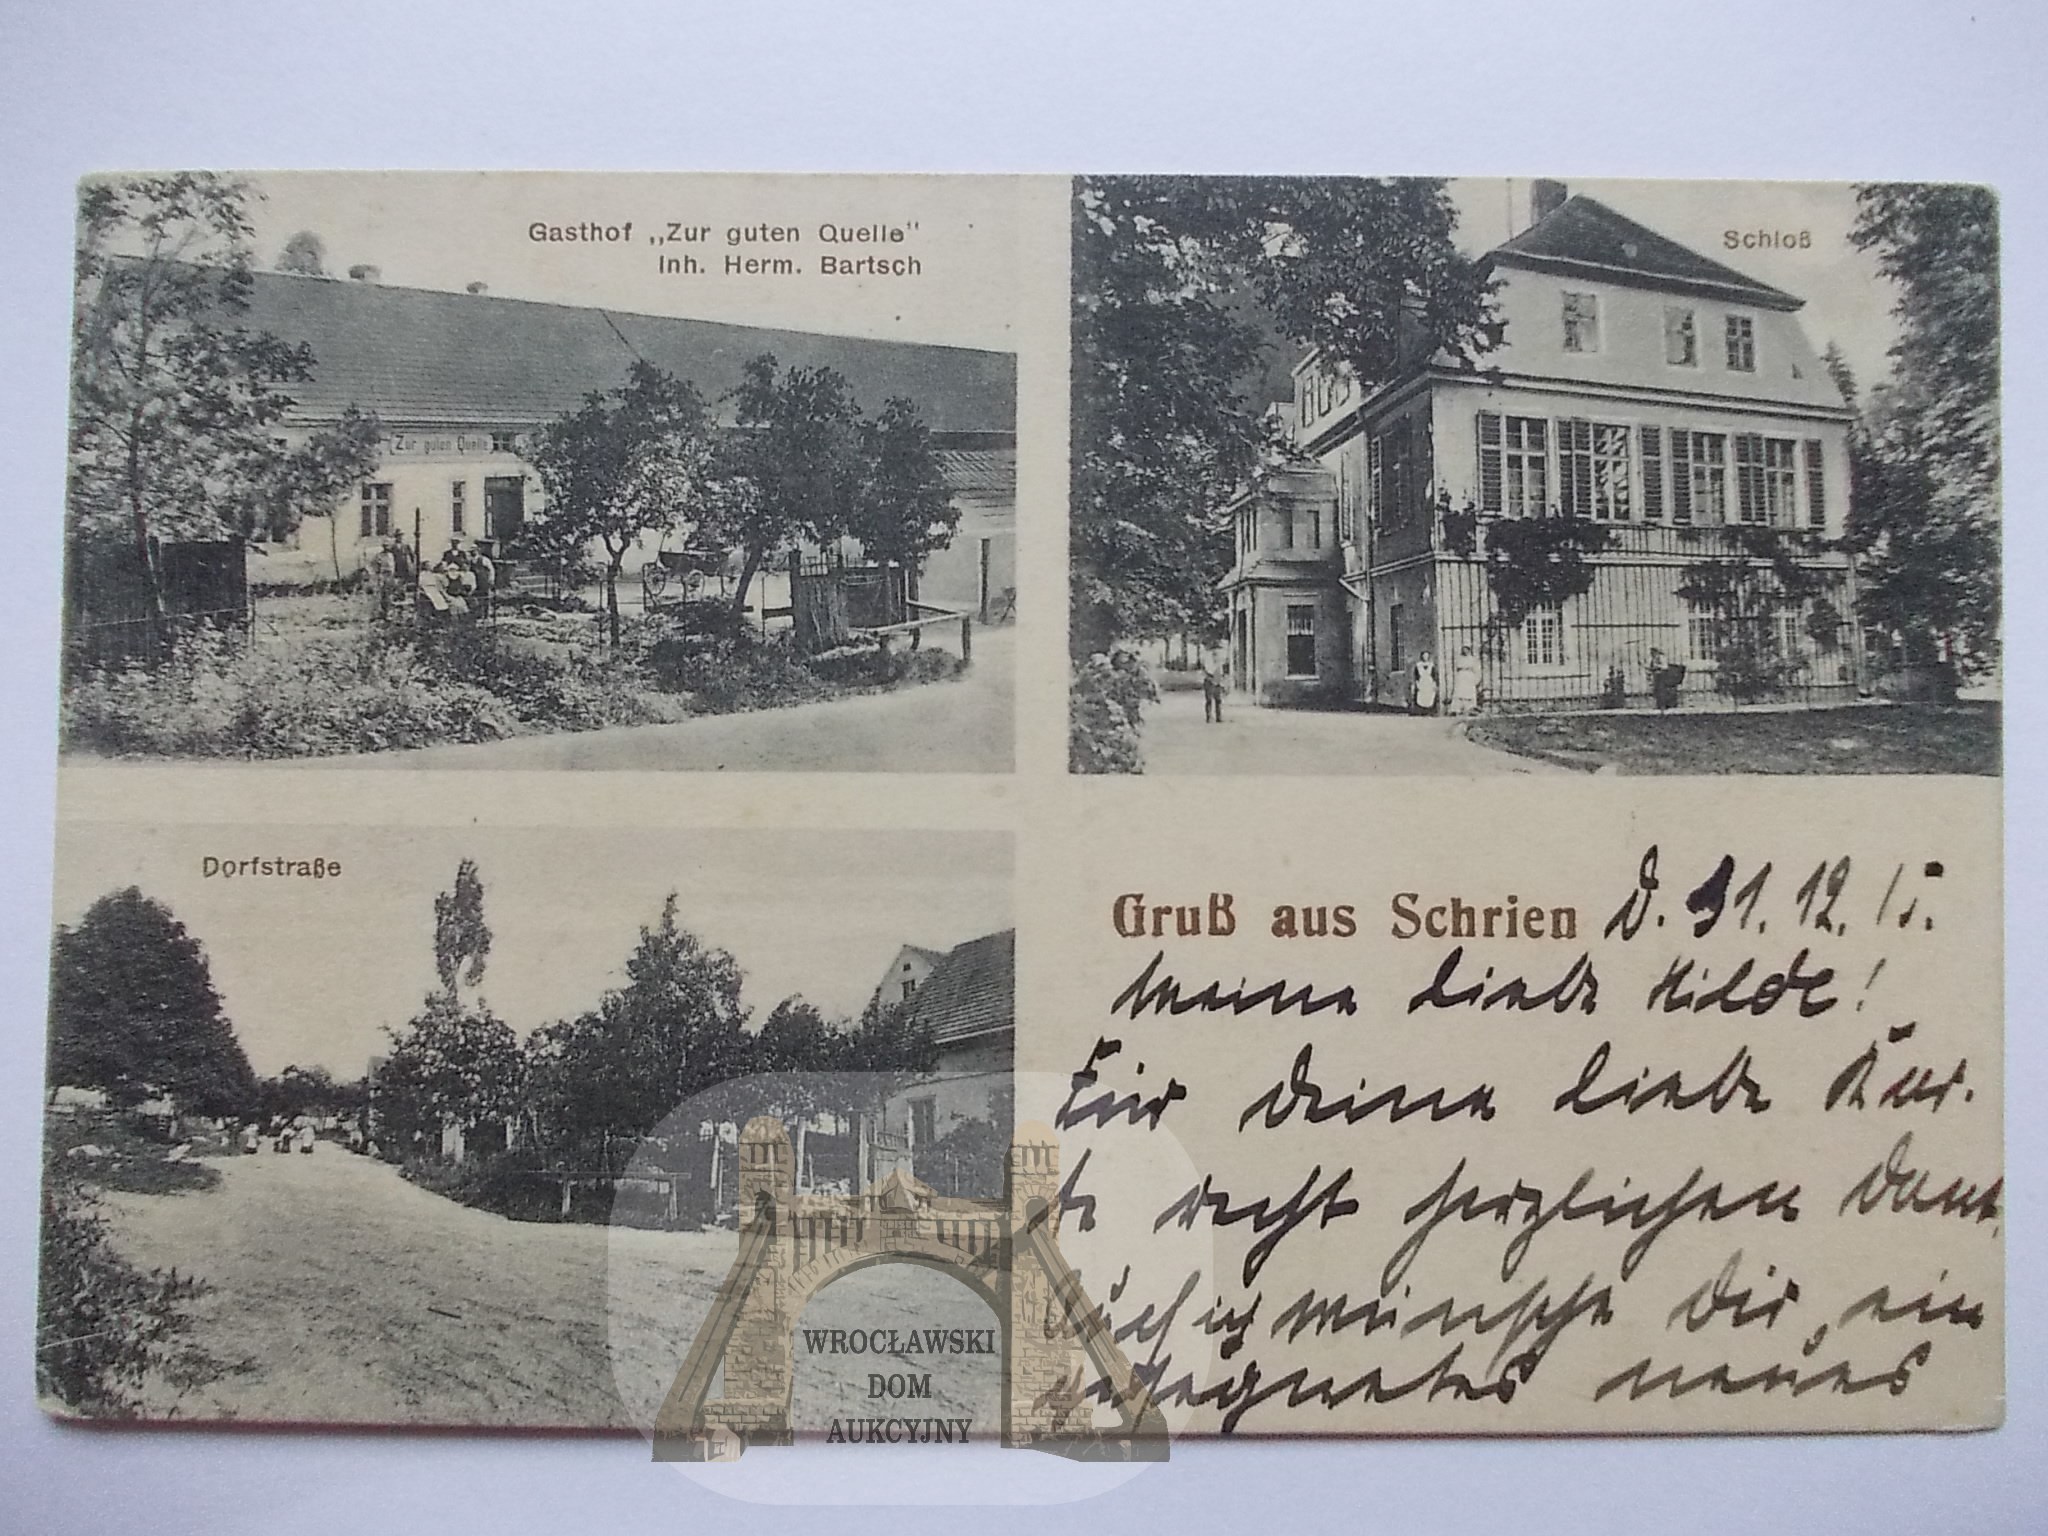 Gasthof „Zur guten Quelle"
Inh. Herm. Bartsch
Zur guten Quelle
Schloß
Dorfstraße
Gruß aus Schrien D. 31. 12. 15.
Meine liebe Hilde!
Für Deine liebe Kar-
te recht herzlichen Dank.
Auch ich wünsche Dir ein
gesegnetes neues
WROCŁAWSKI
DOM
AUKCYJNY